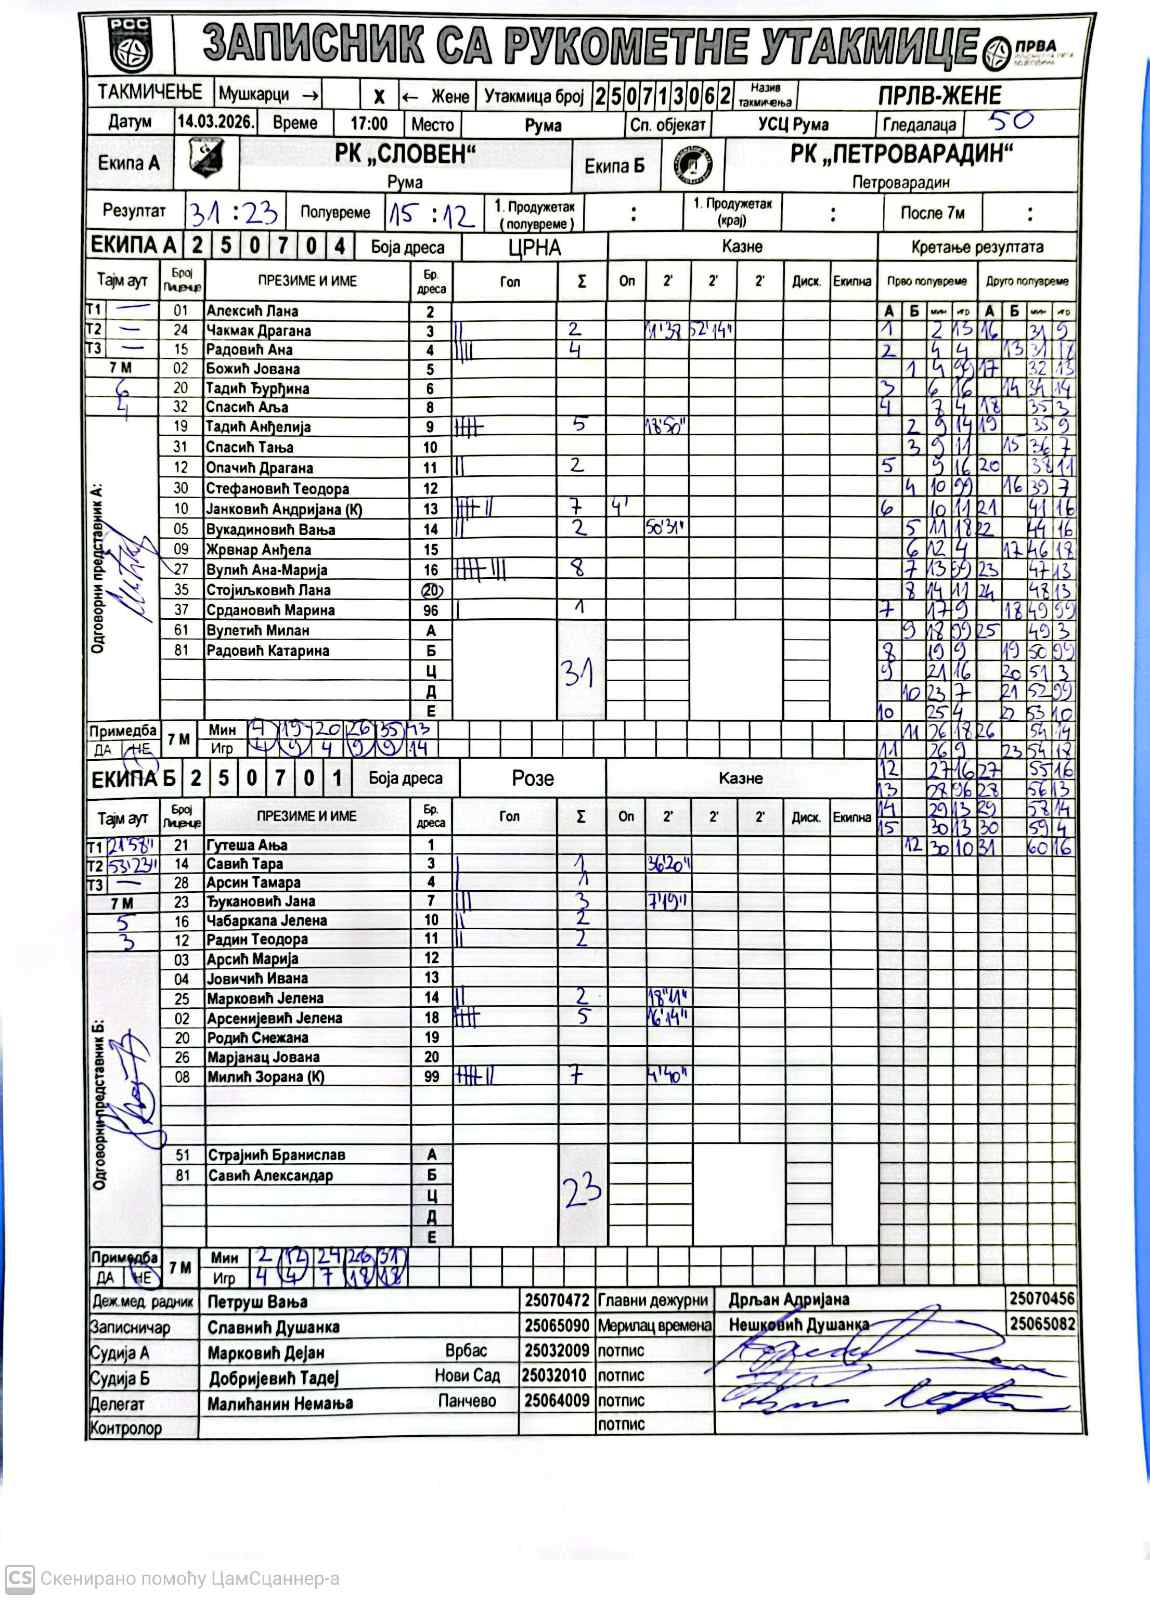 РСС ЗАПИСНИК СА РУКОМЕТНЕ УТАКМИЦЕ ПРВА
ТАКМИЧЕЊЕ Мушкарци → X ← Жене Утакмица број 250713062 Назив такмичења ПРЛВ-ЖЕНЕ
Датум 14.03.2026. Време 17:00 Место Рума Сп. објекат УСЦ Рума Гледалаца 50
Екипа А РК „СЛОВЕН“ Екипа Б РК „ПЕТРОВАРАДИН“
Рума Петроварадин
Резултат 31 : 23 Полувреме 15 : 12 1. Продужетак (полувреме) : 1. Продужетак (крај) : После 7м :
ЕКИПА А 2 5 0 7 0 4 Боја дреса ЦРНА Казне Кретање резултата
Тајм аут Број Лиценце ПРЕЗИМЕ И ИМЕ Бр. дреса Гол Σ Оп 2' 2' 2' Диск. Екипна Прво полувреме Друго полувреме
Т1 — 01 Алексић Лана 2 А Б мин игр А Б мин игр
Т2 — 24 Чакмак Драгана 3 2 31'37 52'14" 1 2 13 16 31 9
Т3 — 15 Радовић Ана 4 4 2 4 4 13 31 18
7 М 02 Божић Јована 5 1 4 99 17 32 13
6 20 Тадић Ђурђина 6 3 6 16 14 34 14
4 32 Спасић Аља 8 4 7 4 18 35 3
19 Тадић Анђелија 9 5 18'50" 2 9 14 19 35 9
31 Спасић Тања 10 3 9 11 15 36 7
12 Опачић Драгана 11 2 5 9 16 20 38 11
30 Стефановић Теодора 12 4 10 99 16 39 7
10 Јанковић Андријана (К) 13 7 4' 6 10 11 21 41 16
05 Вукадиновић Вања 14 2 50'31" 5 11 18 22 44 16
09 Жрвнар Анђела 15 6 12 4 17 46 18
27 Вулић Ана-Марија 16 8 7 13 99 23 47 13
35 Стојиљковић Лана 20 8 14 11 24 48 13
37 Срдановић Марина 96 1 7 17 9 18 49 99
61 Вулетић Милан А 9 18 99 25 49 3
81 Радовић Катарина Б 31 8 19 9 19 50 99
Ц 9 21 16 20 51 3
Д 10 23 7 21 52 99
Е 10 25 4 22 53 10
Одговорни представник А:
Примедба 7 М Мин 4 19 20 26 35 43 11 26 18 26 54 14
ДА НЕ Игр 4 9 4 9 9 14 11 26 9 23 54 18
ЕКИПА Б 2 5 0 7 0 1 Боја дреса Розе Казне 12 27 16 27 55 16
13 28 96 28 56 13
Тајм аут Број Лиценце ПРЕЗИМЕ И ИМЕ Бр. дреса Гол Σ Оп 2' 2' 2' Диск. Екипна 14 29 13 29 58 14
15 30 13 30 59 4
Т1 21'58" 21 Гутеша Ања 1 12 30 10 31 60 16
Т2 53'23" 14 Савић Тара 3 1 36'20"
Т3 — 28 Арсин Тамара 4 1
7 М 23 Ђукановић Јана 7 3 7'19"
5 16 Чабаркапа Јелена 10 2
3 12 Радин Теодора 11 2
03 Арсић Марија 12
04 Јовичић Ивана 13
25 Марковић Јелена 14 2 18'41"
02 Арсенијевић Јелена 18 5 16'14"
20 Родић Снежана 19
26 Марјанац Јована 20
08 Милић Зорана (К) 99 7 4'40"
Одговорни представник Б:
51 Страјнић Бранислав А
81 Савић Александар Б 23
Ц
Д
Е
Примедба 7 М Мин 2 12 24 26 31
ДА НЕ Игр 4 4 7 18 18
Деж.мед. радник Петруш Вања 25070472 Главни дежурни Дрљан Адријана 25070456
Записничар Славнић Душанка 25065090 Мерилац времена Нешковић Душанка 25065082
Судија А Марковић Дејан Врбас 25032009 потпис
Судија Б Добријевић Тадеј Нови Сад 25032010 потпис
Делегат Малићанин Немања Панчево 25064009 потпис
Контролор потпис
CS Скенирано помоћу ЦамСцаннер-а